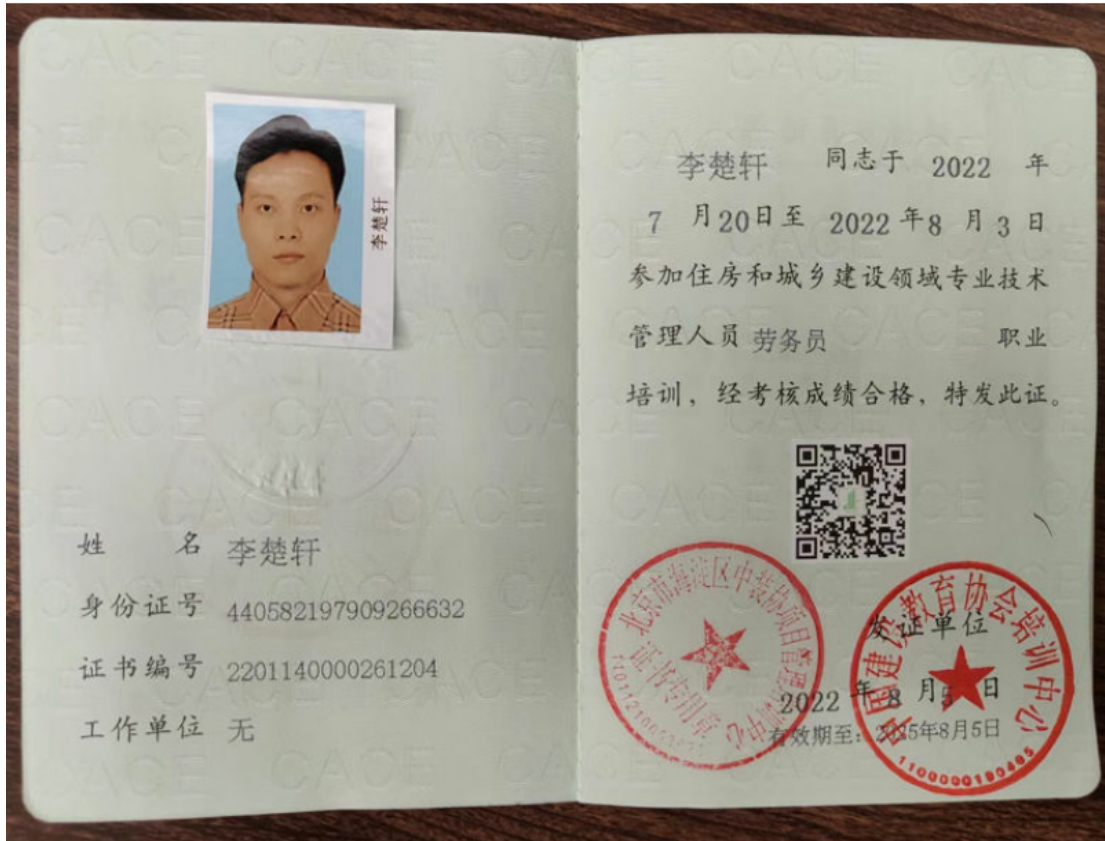 CACE
李楚轩
姓 名 李楚轩
身份证号 440582197909266632
证书编号 2201140000261204
工作单位 无
李楚轩 同志于 2022 年
7 月20日至 2022年8 月 3 日
参加住房和城乡建设领域专业技术
管理人员 劳务员 职业
培训,经考核成绩合格,特发此证。
北京市海淀区中装协项目管理培训中心
证书专用章
中国建设教育协会培训中心
1100000190405
发证单位
2022 年 8 月5 日
有效期至:2025年8月5日